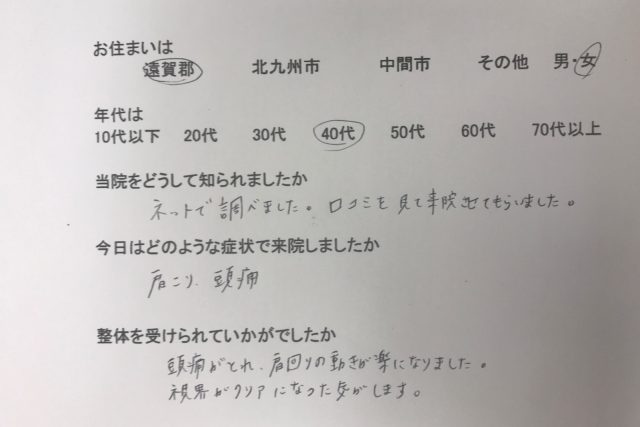 お住まいは
遠賀郡 北九州市 中間市 その他 男・女
年代は
10代以下 20代 30代 40代 50代 60代 70代以上
当院をどうして知られましたか
ネットで調べました。口コミを見て来院させてもらいました。
今日はどのような症状で来院しましたか
肩こり、頭痛
整体を受けられていかがでしたか
頭痛がとれ、肩回りの動きが楽になりました。
視界がクリアになった気がします。